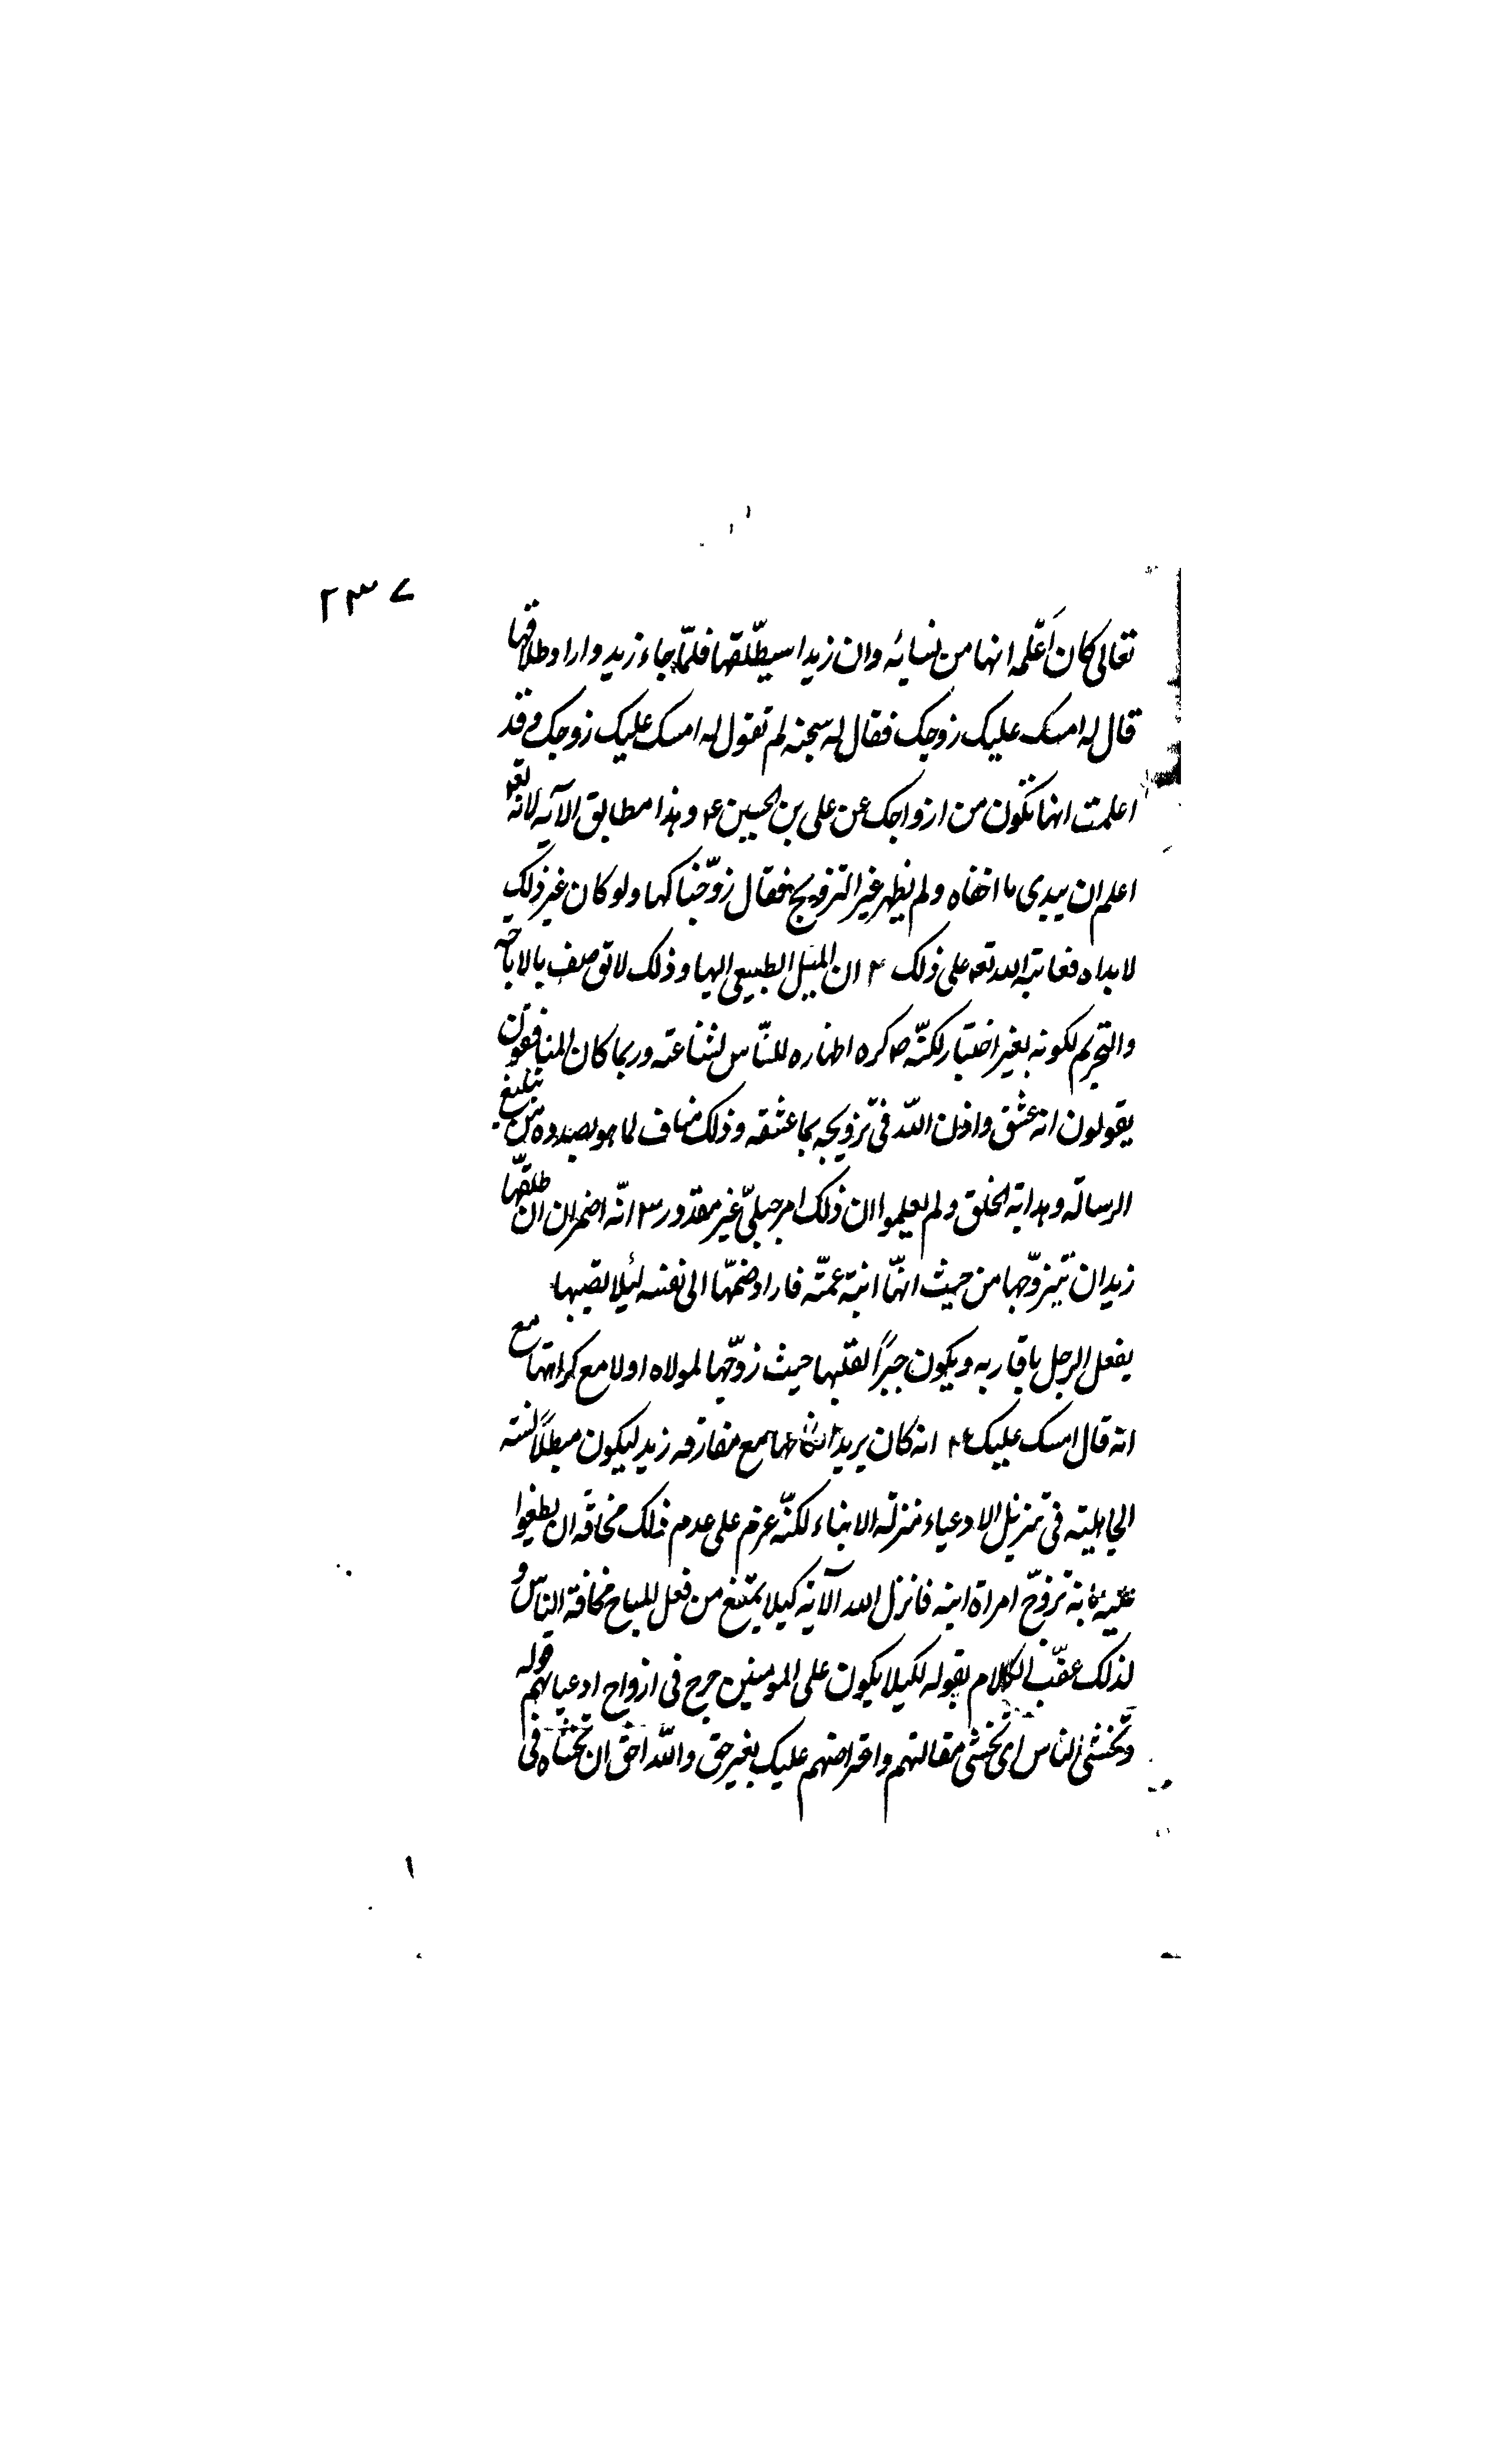 ٢٣٧
تعالى كان أعلمه انها من نسائه وان زيدا سيطلّقها فلمّا جاء زيد واراد طلاقها
قال له امسك عليك زوجك فقال له سبحنه لم تقول له امسك عليك زوجك وقد
اعلمت انها تكون من ازواجك عن على بن الحسين ع وهذا مطابق الآيه لانه تع
اعلم ان يبدى ما اخفاه ولم يظهر غير التزويج فقال زوّجناكها ولو كان غير ذلك
لابداه فعاتبه الله تع على ذلك ٢ ان الميل الطبيعى اليها وذلك لا توصف بالاباحه
والتحريم لكونه بغير اختيار لكنّه ص كره اظهاره للنّاس لشناعته وربما كان المنافقون
يقولون انه عشق واذن الله فى تزويجه بما عشقه وذلك مناف لما هو بصدده من تبليغ
الرسالة وهداية الخلق ولم يعلموا ان ذلك امر جبلىّ غير مقدور ٣ انّه اضمر ان ان طلقها
زيد ان يتزوّجها من حيث انها ابنة عمّته فاراد ضمّها الى نفسه لئلا يصيبها
يفعل الرجل باقاربه ويكون جبرًا لقلبها حيث زوّجها لمولاه اولا مع كراهتها مع
انه قال امسك عليك ٤ انه كان يريد نكاحها مع مفارقه زيد ليكون مبطلاً لسنه
الجاهلية فى تنزيل الادعياء منزلة الابناء لكنّه عزم على عدم ذلك مخافة ان يطعنوا
عليه بانه تزوّج امراة ابنه فانزل الله الآية كيلا يمتنع من فعل المباح مخافة الناس و
لذلك عقّب الكلام بقوله لكيلا يكون على المومنين حرج فى ازواج ادعيائهم قوله
وتخشى الناس اى تخشى مقالتهم واعتراضهم عليك بغير حق والله احق ان تخشاه فى